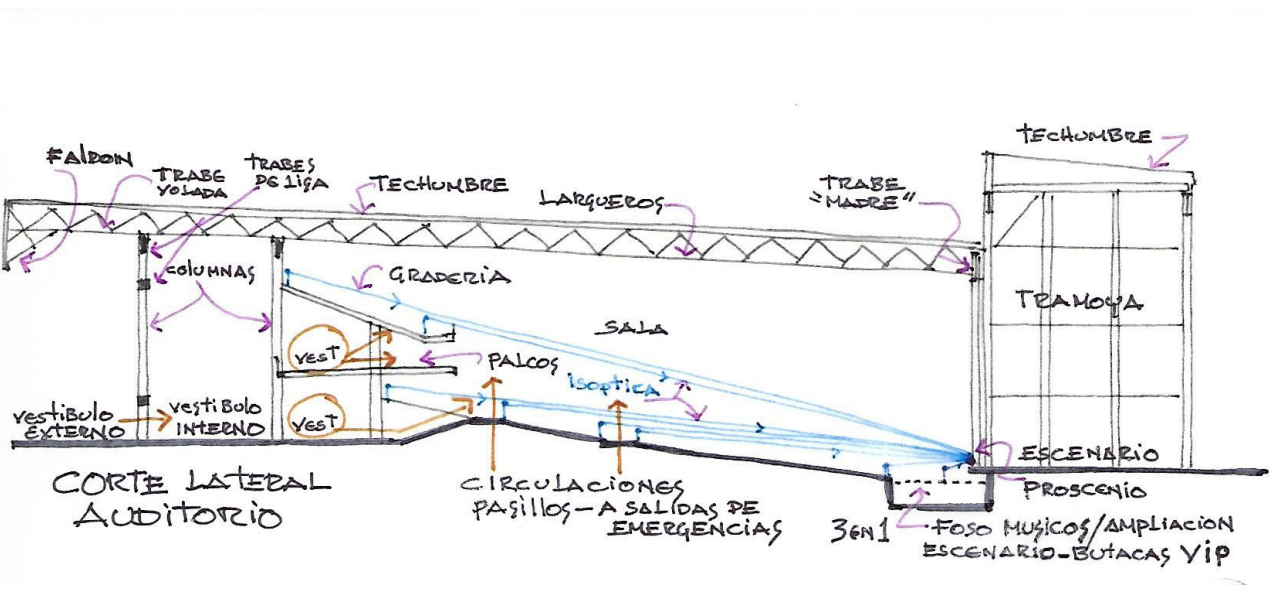 TECHUMBRE
FALDOIN
TRABE
VOLADA
TRABES
DE LIGA
TECHUMBRE
LARGUEROS
TRABE
"MADRE"
COLUMNAS
GRADERIA
TRAMOYA
SALA
VEST
PALCOS
ISOPTICA
VESTIBULO
EXTERNO
VESTIBULO
INTERNO
VEST
ESCENARIO
PROSCENIO
CORTE LATERAL
AUDITORIO
CIRCULACIONES
PASILLOS-A SALIDAS DE
EMERGENCIAS
3 EN 1
FOSO MUSICOS/AMPLIACION
ESCENARIO-BUTACAS VIP